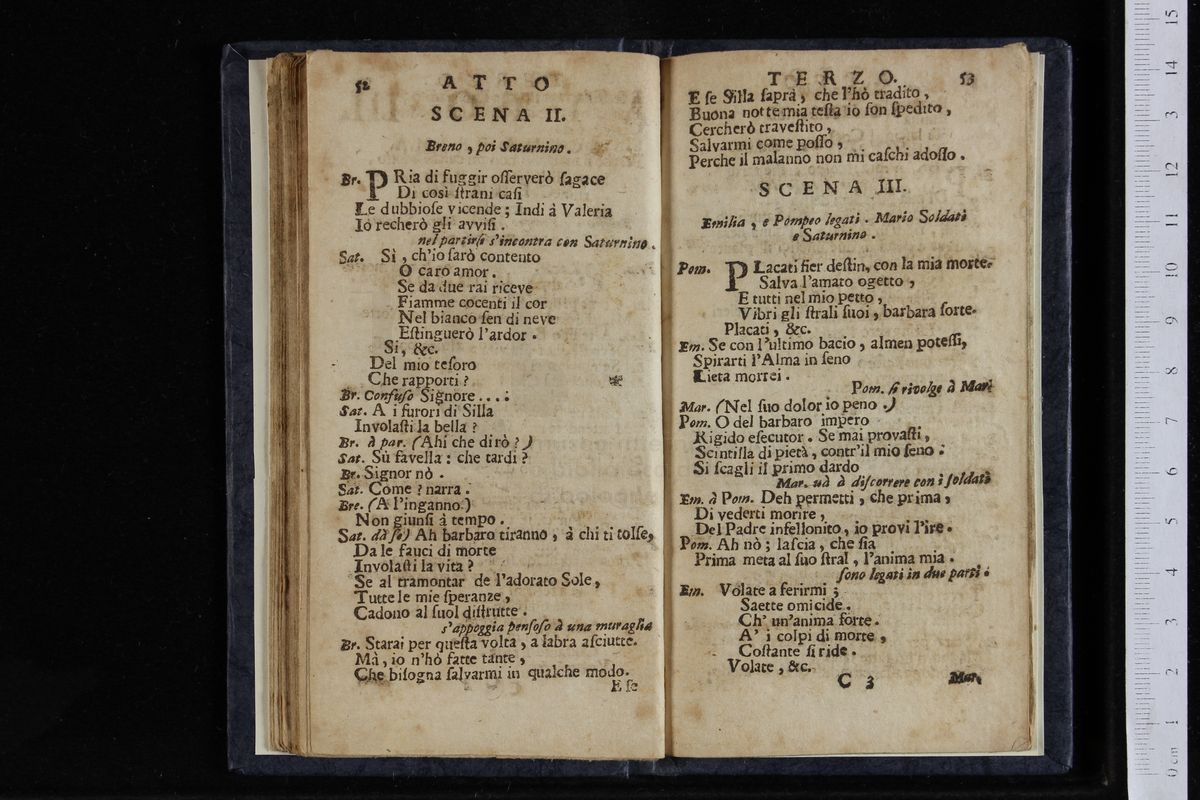 52 ATTO
SCENA II.
Breno, poi Saturnino.
Br. PRia di fuggir oſſerverò ſagace
Di così ſtrani caſi
Le dubbioſe vicende; Indi à Valeria
Iò recherò gli avviſi.
nel partirſi s'incontra con Saturnino.
Sat. Sì, ch'io ſarò contento
O caro amor.
Se da due rai riceve
Fiamme cocenti il cor
Nel bianco ſen di neve
Eſtinguerò l'ardor.
Si, &c.
Del mio teſoro
Che rapporti?
Br. Confuſo Signore....:
Sat. A i furori di Silla
Involaſti la bella?
Br. à par. (Ahi che dirò?)
Sat. Sù favella: che tardi?
Br. Signor nò.
Sat. Come? narra.
Bre. (A l'inganno)
Non giunſi à tempo.
Sat. dà ſe) Ah barbaro tiranno, à chi ti tolſe,
Da le fauci di morte
Involaſti la vita?
Se al tramontar de l'adorato Sole,
Tutte le mie ſperanze,
Cadono al ſuol diſtrutte.
s'appoggia penſoſo à una muraglia
Br. Starai per queſta volta, a labra aſciutte.
Mà, io n'hò fatte tante,
Che biſogna ſalvarmi in qualche modo.
E ſe
TERZO. 53
E ſe Silla ſaprà, che l'hò tradito,
Buona notte mia teſta io ſon ſpedito,
Cercherò traveſtito,
Salvarmi come poſſo,
Perche il malanno non mi caſchi adoſſo.
SCENA III.
Emilia, e Pompeo legati. Mario Soldati
e Saturnino.
Pom. PLacati fier deſtin, con la mia morte.
Salva l'amato ogetto,
E tutti nel mio petto,
Vibri gli ſtrali ſuoi, barbara ſorte.
Placati, &c.
Em. Se con l'ultimo bacio, almen poteſſi,
Spirarti l'Alma in ſeno
Lieta morrei.
Pom. ſi rivolge à Mari
Mar. (Nel ſuo dolor io peno.)
Pom. O del barbaro impero
Rigido eſecutor. Se mai provaſti,
Scintilla di pietà, contr'il mio ſeno.
Si ſcagli il primo dardo
Mar. và à diſcorrere con i ſoldati
Em. à Pom. Deh permetti, che prima,
Di vederti morire,
Del Padre infellonito, io provi l'ire.
Pom. Ah nò; laſcia, che ſia
Prima meta al ſuo ſtral, l'anima mia.
ſono legati in due parti.
Em. Volate a ferirmi;
Saette omicide.
Ch' un'anima forte.
A' i colpi di morte,
Coſtante ſi ride.
Volate, &c.
C 3 Mar.
15
14
13
12
11
10
9
8
7
6
5
4
3
2
1
0 cm